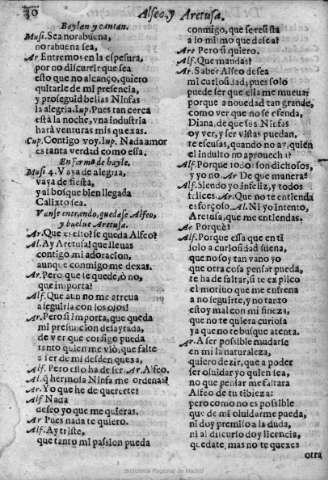 30
Alfeo, y Aretusa.
Baylan y cantan.
Musi. Sea norabuena,
norabuena sea,
Ar Entremos en la espesura,
por no discurrir que sea
esto que no alcanço, quiero
quitarle de mi presencia,
y proseguid bellas Ninfas
la alegria. Iup. Pues tan cerca
està la noche, vna industria
harà venturas mis quexas.
Cup. Contigo voy. Iup. Nada amor
es tanta verdad como essa.
En forma de bayle.
Musi 4. Vaya de alegria,
vaya de fiesta,
y al bosque bien llegada
Calixto sea.
Vanse entrando, quedase Alfeo,
y buelve Aretusa.
Ar. Que es esto? se queda Alfeo?
Al. Ay Aretusa! que lleuas
contigo mi adoracion,
aunque conmigo me dexas.
Ar. Pero que te quede, ò no,
que importa?
Alf. Que aun no me atreua
a seguirla con los ojos!
Ar. Pero si importa, que queda
mi presuncion desayrada,
de ver que consigo pueda
tanto quien me viò, que falte
a ser de mi desden quexa.
Alf. Pero esto ha de ser. Ar. Alfeo.
Al. q̃ hermosa Ninfa me ordenas?
Ar. Yo que he de quererte?
Alf Nada
deseo yo que me quieras.
Ar Pues nada te quiero.
Alf. Ay triste,
que tanto mi passion pueda
conmigo, que se resista
a lo mismo que desea!
Ar. Pero si quiero.
Alf. Que mandas?
Ar. Saber Alfeo desea
mi curiosidad; pues solo
puede ser que ella me mueua
por que a nouedad tan grande,
como ver que no se ofenda,
Diana, de que los Ninfas
oy ver, y ser vistas puedan,
te escusas, quando no ay, quien
el indulto no aprouecha?
Alf. Porque todos son dichosos,
y yo no. Ar De que manera?
Alf. Siendo yo infeliz, y todos
felices. Ar. Que no te entienda
es forçoso. Al. Ni yo intento,
Aretusa, que me entiendas.
Ar. Porquè?
Alf. Porque essa que en ti
solo a curiosidad suena,
que no soy tan vano yo
que otra cosa pensar pueda,
te ha de faltar, si te explico
el motiuo que me enfrena
a no seguirte, y no tanto
estoy mal con mi fineza,
que no te quiera curiosa
ya que no te busque atenta.
Ar. A ser possible mudarse
en mi la naturaleza,
quiero dezir, que a poder
ser oluidar yo quien sea,
no que pensar me faltara
Alfeo de tu tibieza:
pero como no es possible
que de mi oluidarme pueda,
ni doy premiso a la duda,
ni al discurso doy licencia,
quedate, mas no te quexes
otra
Biblioteca Regional de Madrid